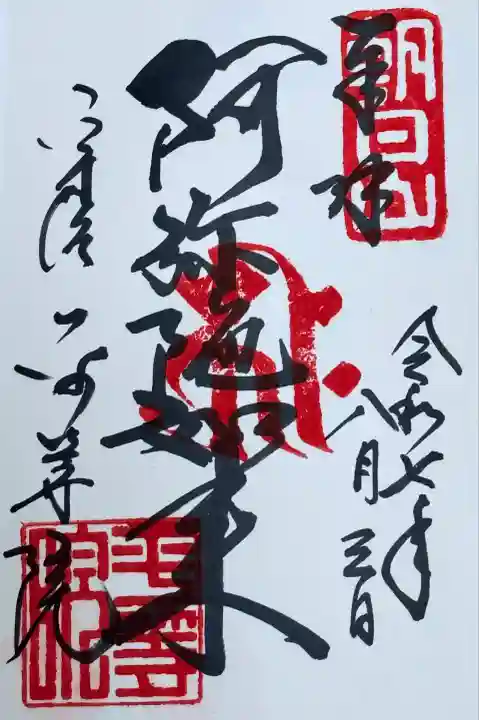 奉拝
朝日山
令和七年
八月三日
阿弥陀如来
平等院